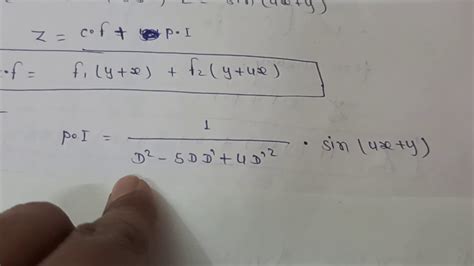 Z = sin(4x+y)
Z = C.f + P.I
.f = f₁(y+x) + f₂(y+4x)
P.I = 1 / (D² - 5DD' + 4D'²) . sin(4x+y)